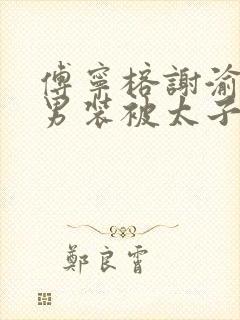 傅寧榕謝渝
男裝被太子
鄭良霄